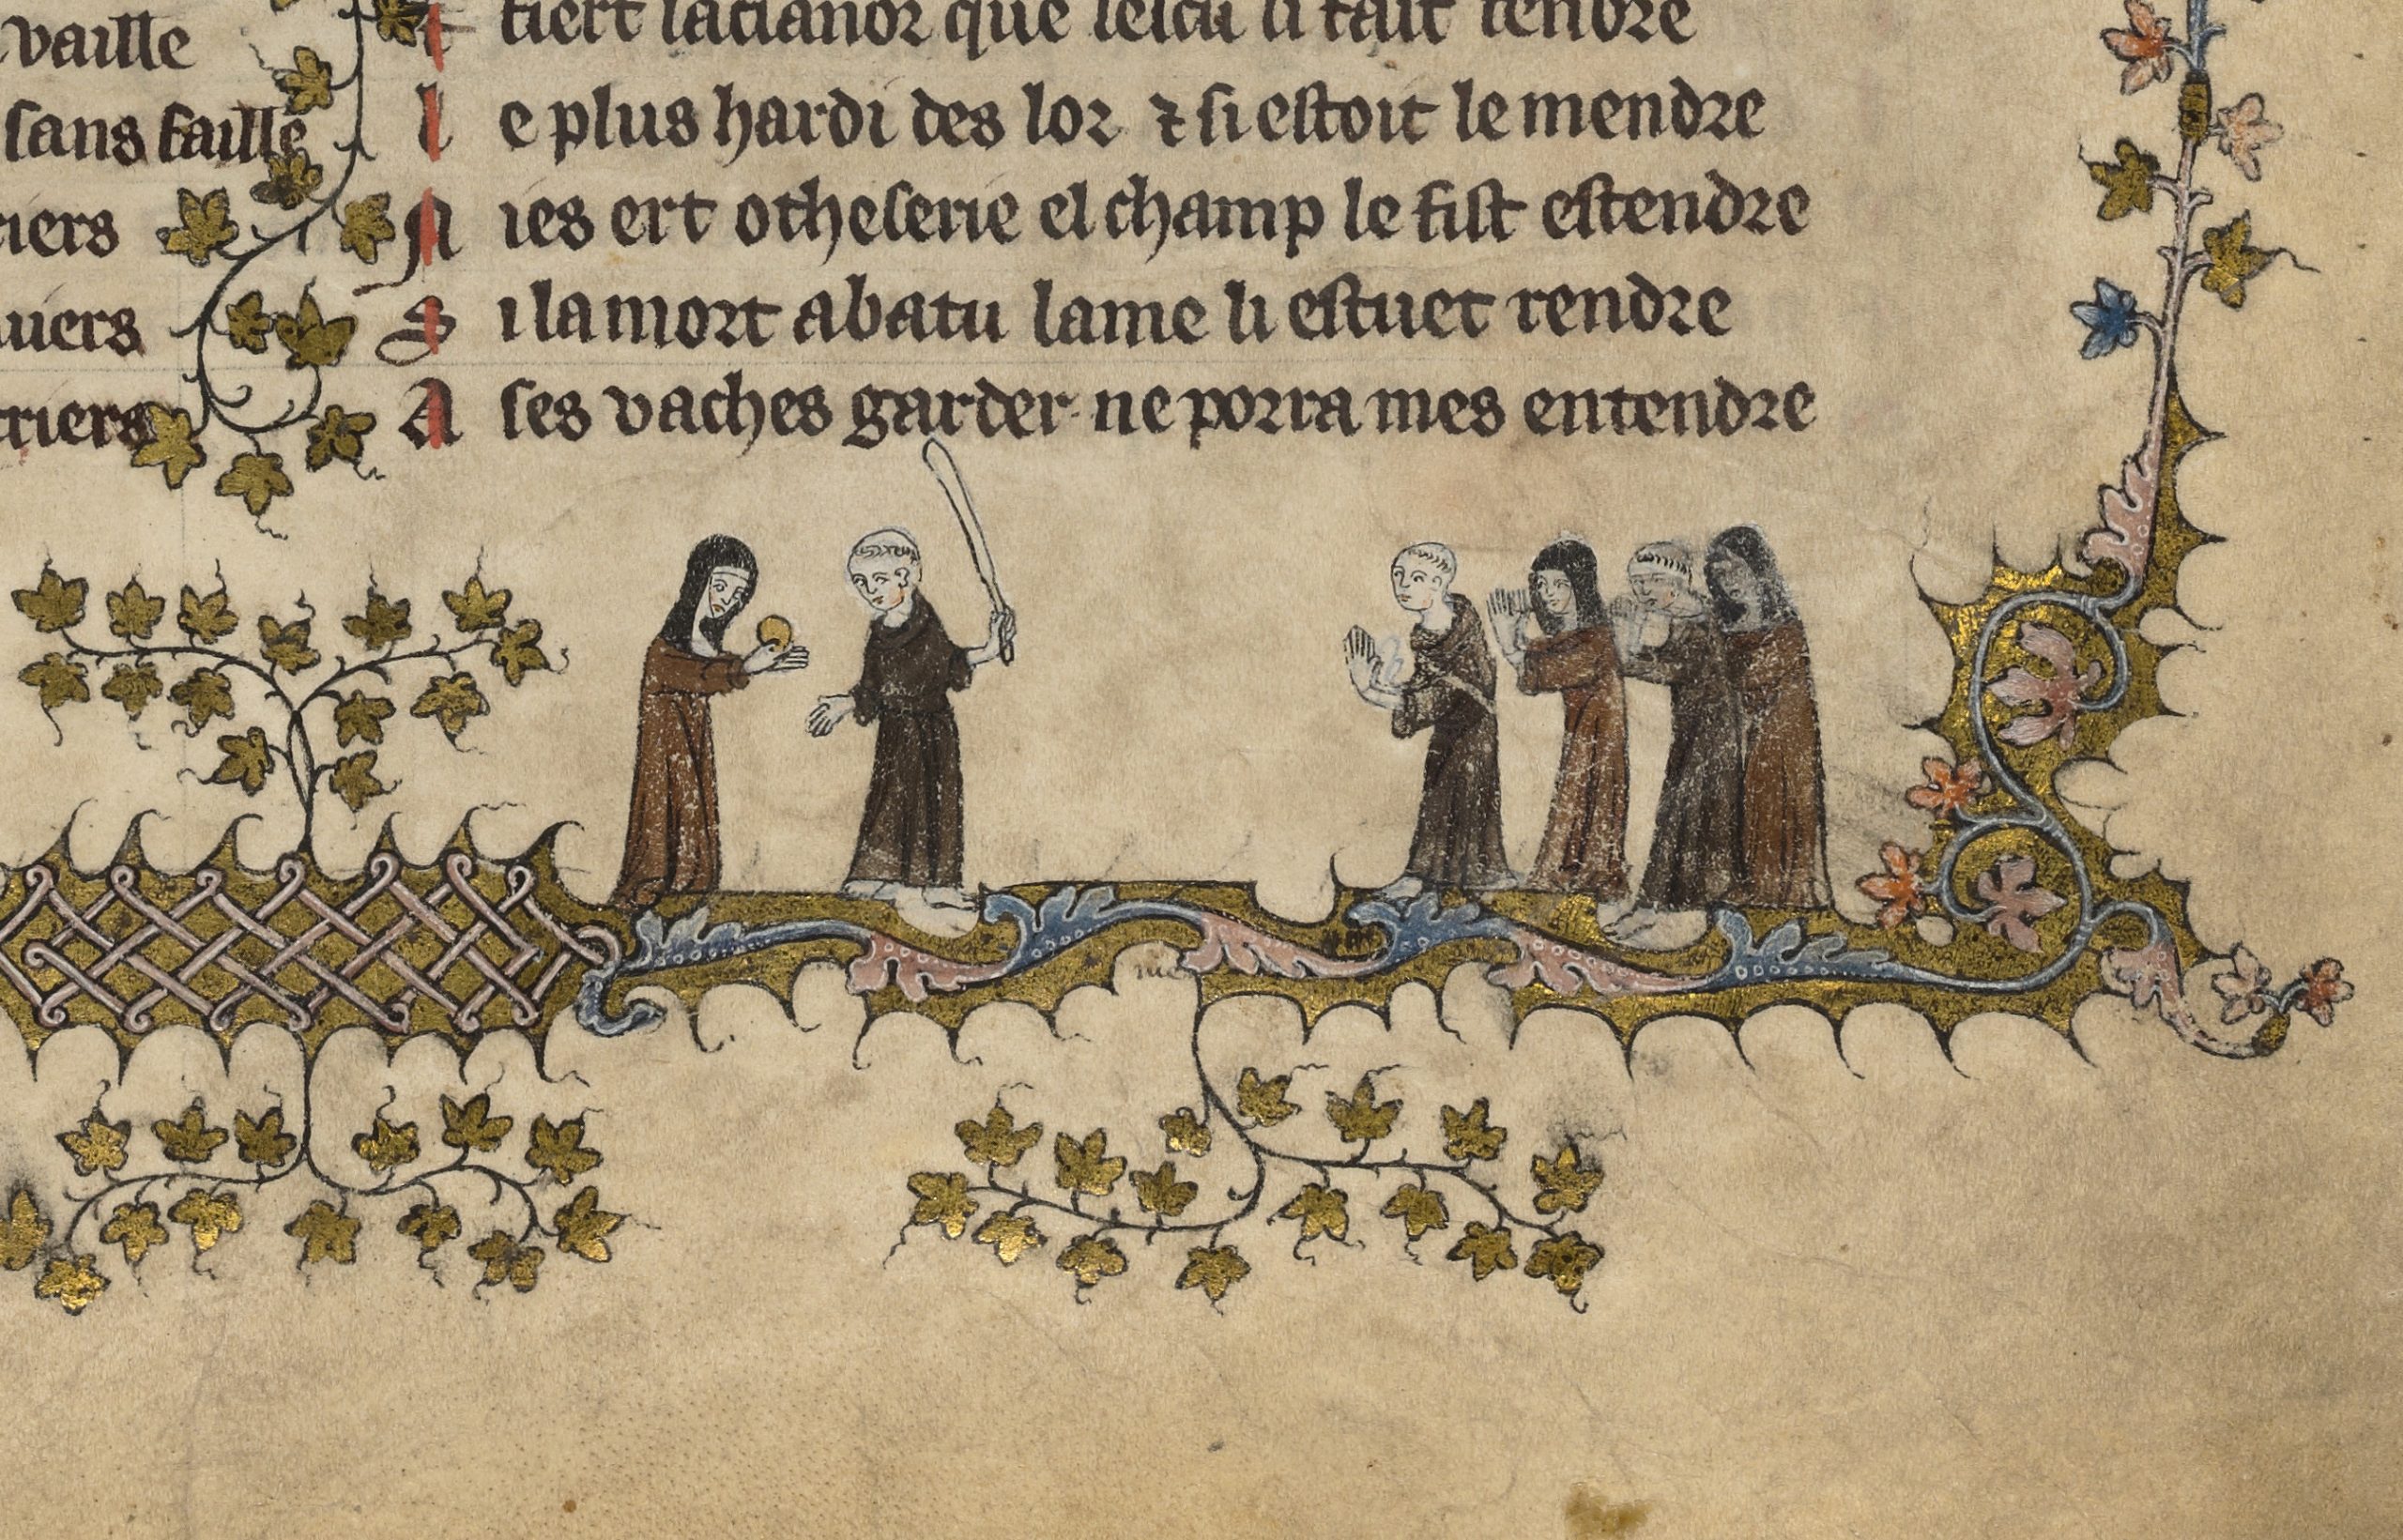 vaille
sans faille
riers
uers
triers
fiert lacianor que lescu li fait fendre
l e plus hardi des lor ⁊ si estoit le mendre
N ies ert otheserie el champ le fist estendre
S i la mort abatu lame li estuet rendre
A ses vaches garder ne porra mes entendre